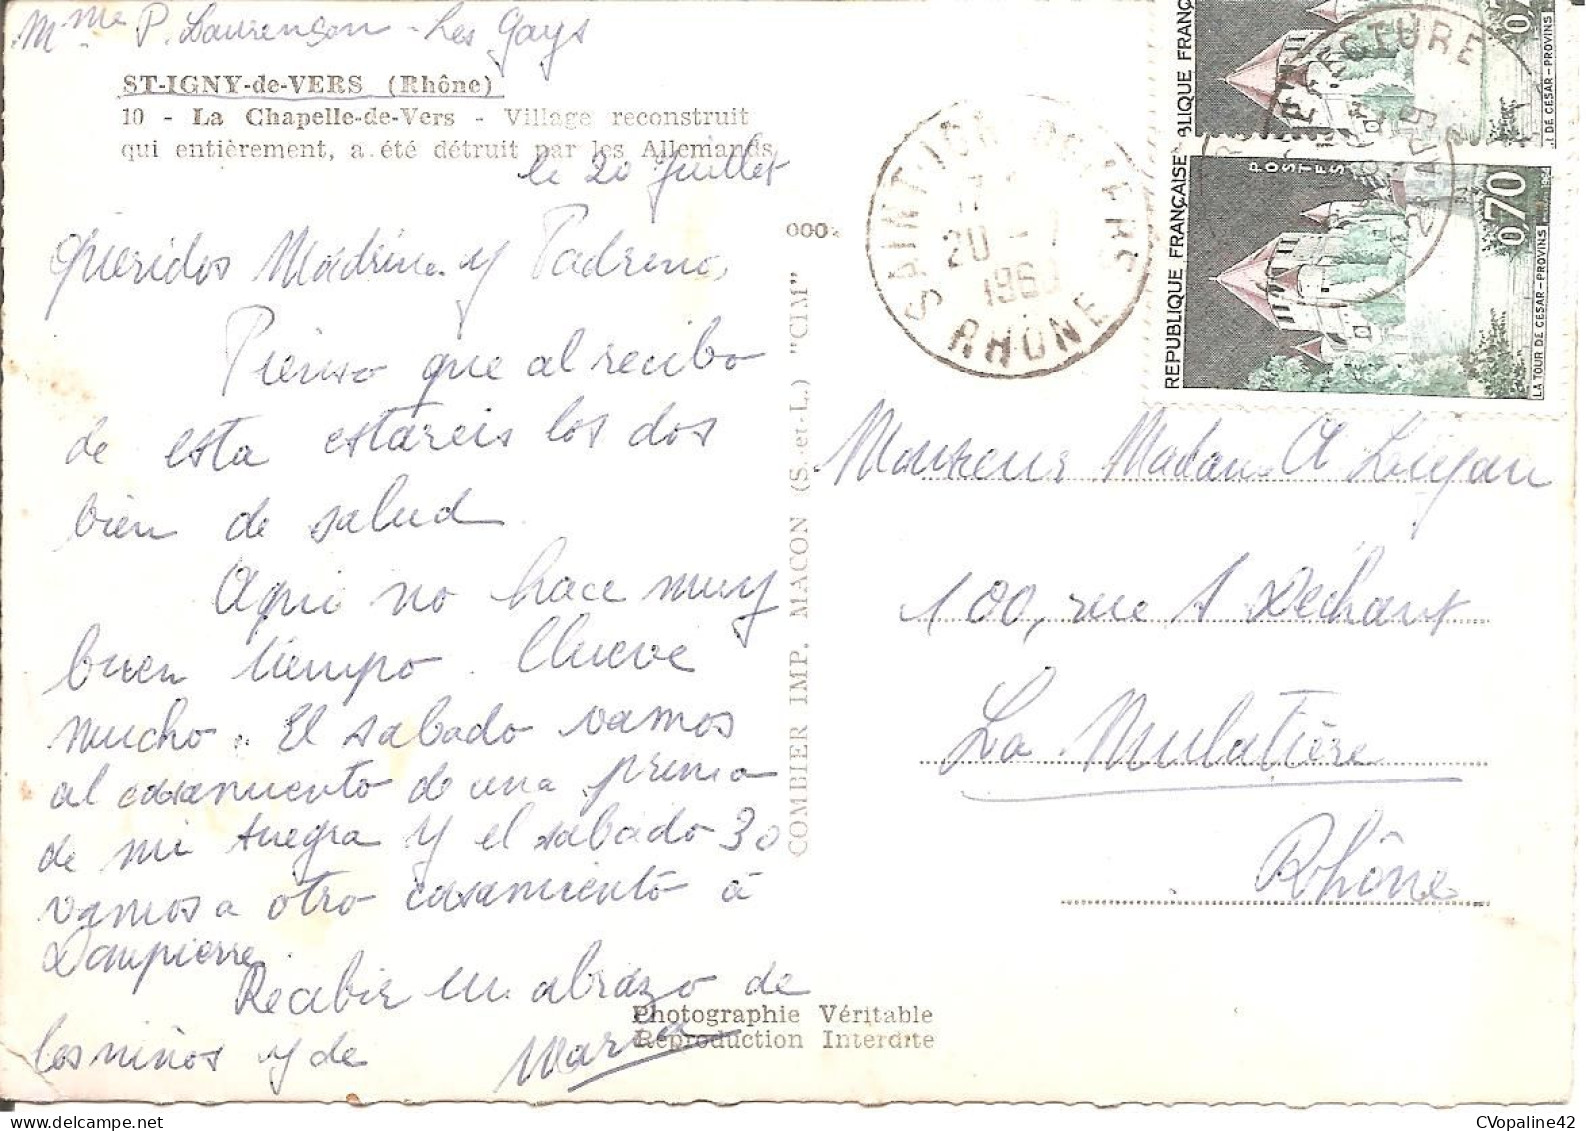 Mme P. Laurençon - Les Gays
ST-IGNY-de-VERS (Rhône)
10 - La Chapelle-de-Vers - Village reconstruit
qui entièrement, a été détruit par les Allemands
le 20 Juillet
Queridos Madrina y Padrino,
Pienso que al recibo
de esta estareis los dos
bien de salud
Aqui no hace muy
buen tiempo. llueve
mucho. El sabado vamos
al casamiento de una prima
de mi suegra y el sabado 30
vamos a otro casamiento à
Dampierre.
Recibir un abrazo de
los niños y de Maria
Photographie Véritable
Reproduction Interdite
COMBIER IMP. MACON (S.-et-L.) "CIM"
000
20 - 7
RHONE
REPUBLIQUE FRANÇAISE
POSTES
0,70
LA TOUR DE CESAR - PROVINS
Monsieur Madame A Lujan
100, rue S Déchant
La Mulatière
Rhône
CVopaline42